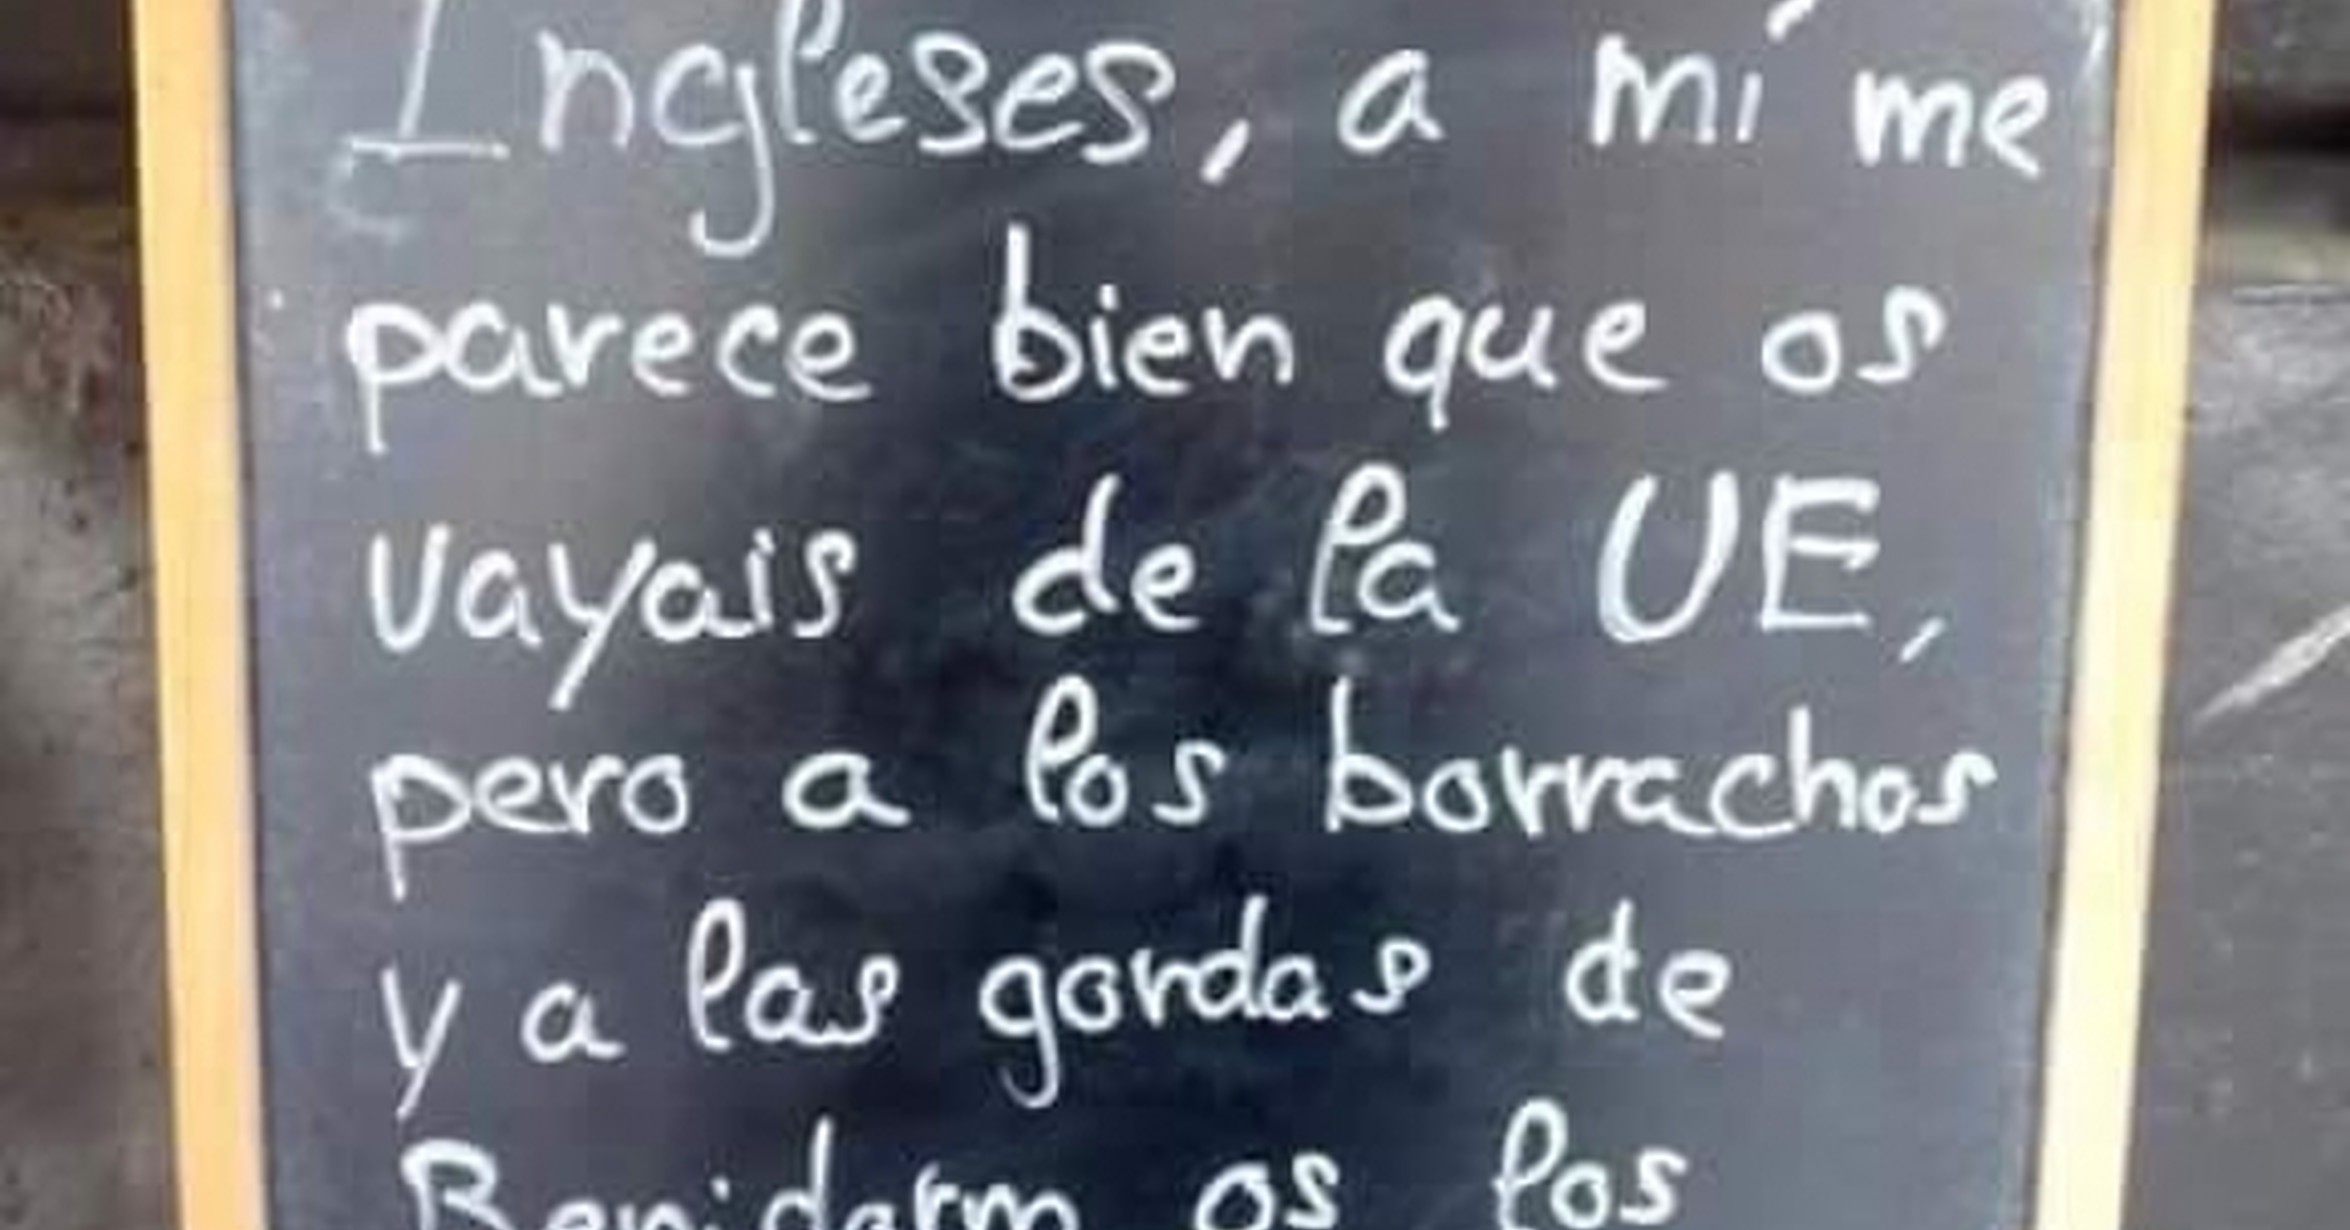 Ingleses, a mí me
parece bien que os
vayais de la UE,
pero a los borrachos
y a las gordas de
Benidorm os los